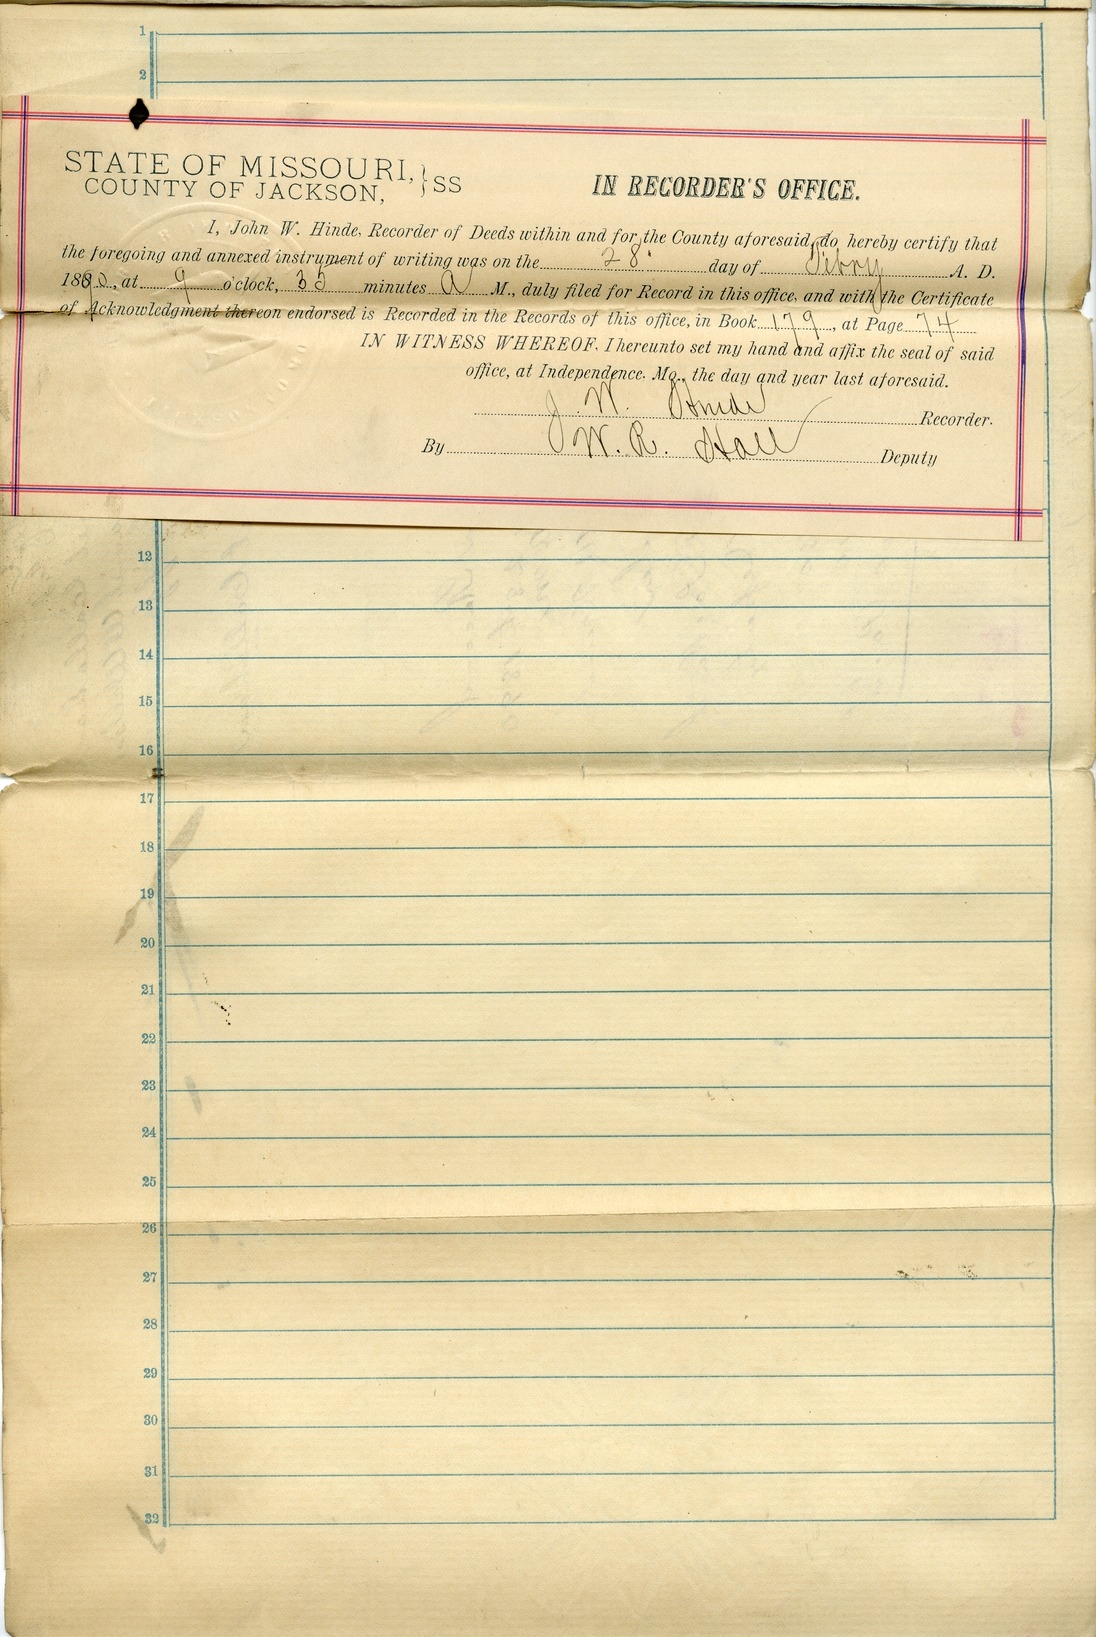 1
2
STATE OF MISSOURI, } SS
COUNTY OF JACKSON,
IN RECORDER'S OFFICE.
I, John W. Hinde, Recorder of Deeds within and for the County aforesaid, do hereby certify that
the foregoing and annexed instrument of writing was on the 28" day of Febry A. D.
1890, at 9 o'clock, 35 minutes A M., duly filed for Record in this office, and with the Certificate
of Acknowledgment thereon endorsed is Recorded in the Records of this office, in Book 179, at Page 74
IN WITNESS WHEREOF, I hereunto set my hand and affix the seal of said
office, at Independence, Mo., the day and year last aforesaid.
J. W. Hinde Recorder.
By W. R. Hall Deputy
12
13
14
15
16
17
18
19
20
21
22
23
24
25
26
27
28
29
30
31
32